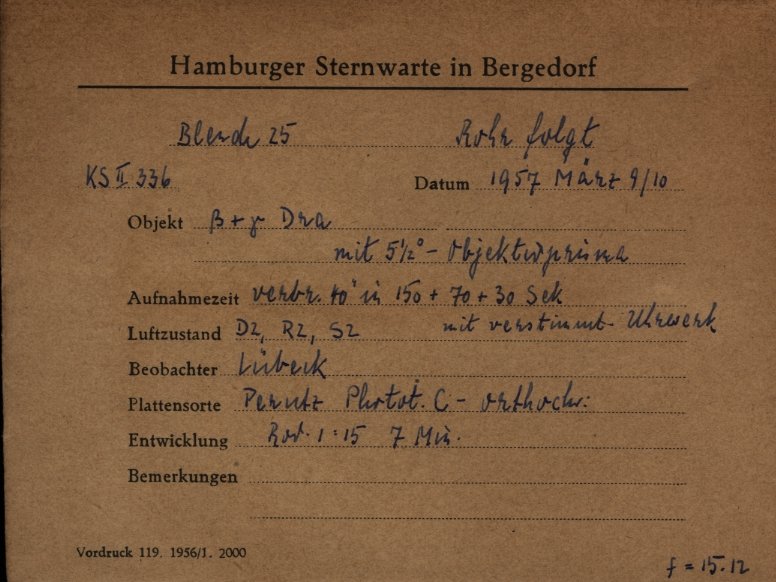 Hamburger Sternwarte in Bergedorf
Blende 25 Rohr folgt
KS II 336 Datum 1957 März 9/10
Objekt β + γ Dra
mit 5 1/2° - Objektivprisma
Aufnahmezeit verbr. 40" in 150 + 70 + 30 Sek
Luftzustand D2, R2, S2 mit verstimmt. Uhrwerk
Beobachter Lübeck
Plattensorte Perutz Photot. C - orthochr.
Entwicklung Rod. 1:15 7 Min.
Bemerkungen
Vordruck 119. 1956/1. 2000
f = 15.12